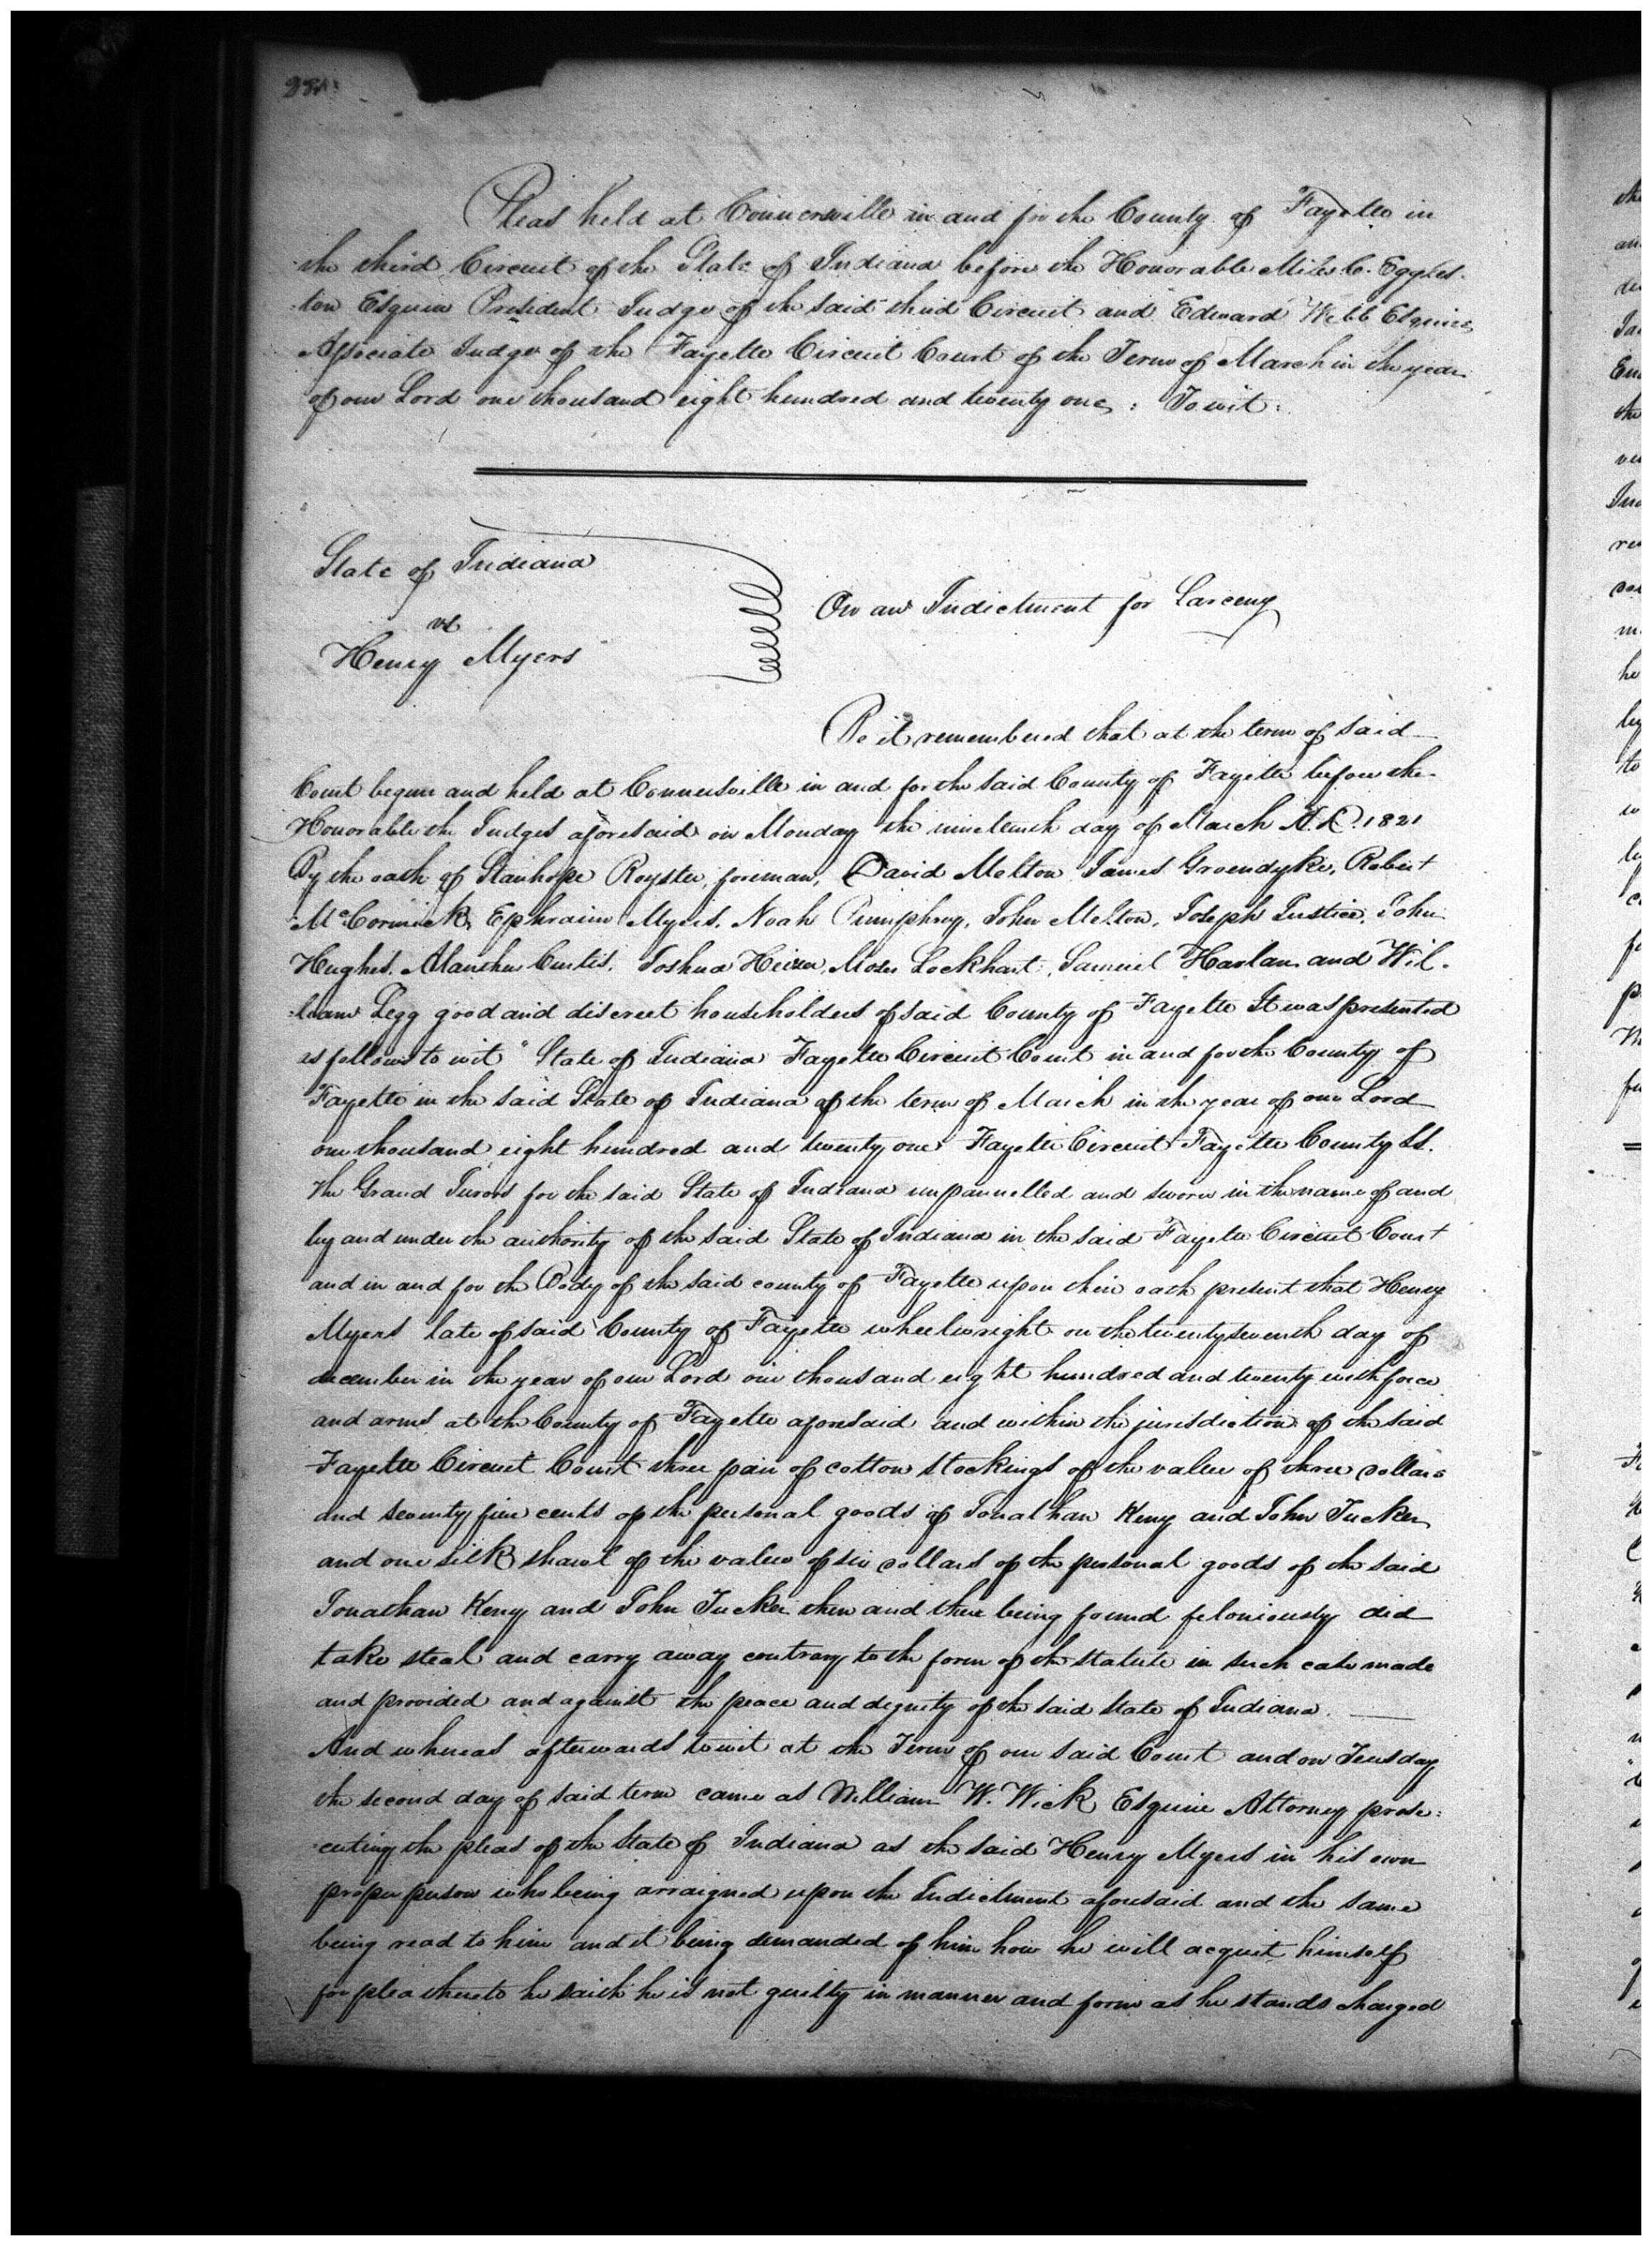 Pleas held at Connersville in and for the County of Fayette in
the third Circuit of the State of Indiana before the Honorable Miles C. Eggles-
-ton Esquire President Judge of the said third Circuit and Edward Webb Esquire
Associate Judge of the Fayette Circuit Court of the Term of March in the year
of our Lord one thousand eight hundred and twenty one : Towit:
State of Indiana
vs
Henry Myers
On an Indictment for Larceny
Be it remembered that at the term of said
Court begun and held at Connersville in and for the said County of Fayette before the
Honorable the Judges aforesaid on Monday the nineteenth day of March A.D. 1821
By the oath of Stanhope Royster, foreman, David Melton James Groendyke, Robert
McCormick, Ephraim Myers, Noah Pumphrey, John Melton, Joseph Justice, John
Hughes, Curtis, Joshua Heizer, Moses Lockhart, Samuel Harlan and Wil-
-liam Legg good and discreet householders of said County of Fayette It was presented
as follows to wit "State of Indiana Fayette Circuit Court in and for the County of
Fayette in the said State of Indiana of the term of March in the year of our Lord
one thousand eight hundred and twenty one Fayette Circuit Fayette County Ss.
The Grand Jurors for the said State of Indiana unpannelled and sworn in the name of and
by and under the authority of the said State of Indiana in the said Fayette Circuit Court
and in and for the Body of the said county of Fayette upon their oath present that Henry
Myers late of said County of Fayette wheelwright on the twenty seventh day of
december in the year of our Lord one thousand eight hundred and twenty with force
and arms at the County of Fayette aforesaid and within the jurisdiction of the said
Fayette Circuit Court three pair of cotton stockings of the value of three dollars
and seventy five cents of the personal goods of Jonathan Keny and John Tucker
and one silk shawl of the value of six dollars of the personal goods of the said
Jonathan Keny and John Tucker then and there being found feloniously did
take steal and carry away contrary to the form of the statute in such case made
and provided and against the peace and dignity of the said State of Indiana.
And whereas afterwards towit at the Term of our said Court and on Teusday
the second day of said term came as William W. Wick Esquire Attorney prose:
-cuting the pleas of the State of Indiana as the said Henry Myers in his own
proper person who being arraigned upon the Indictment aforesaid and the same
being read to him and it being demanded of him how he will acquit himself
for plea thereto he saith he is not guilty in manner and form as he stands charged